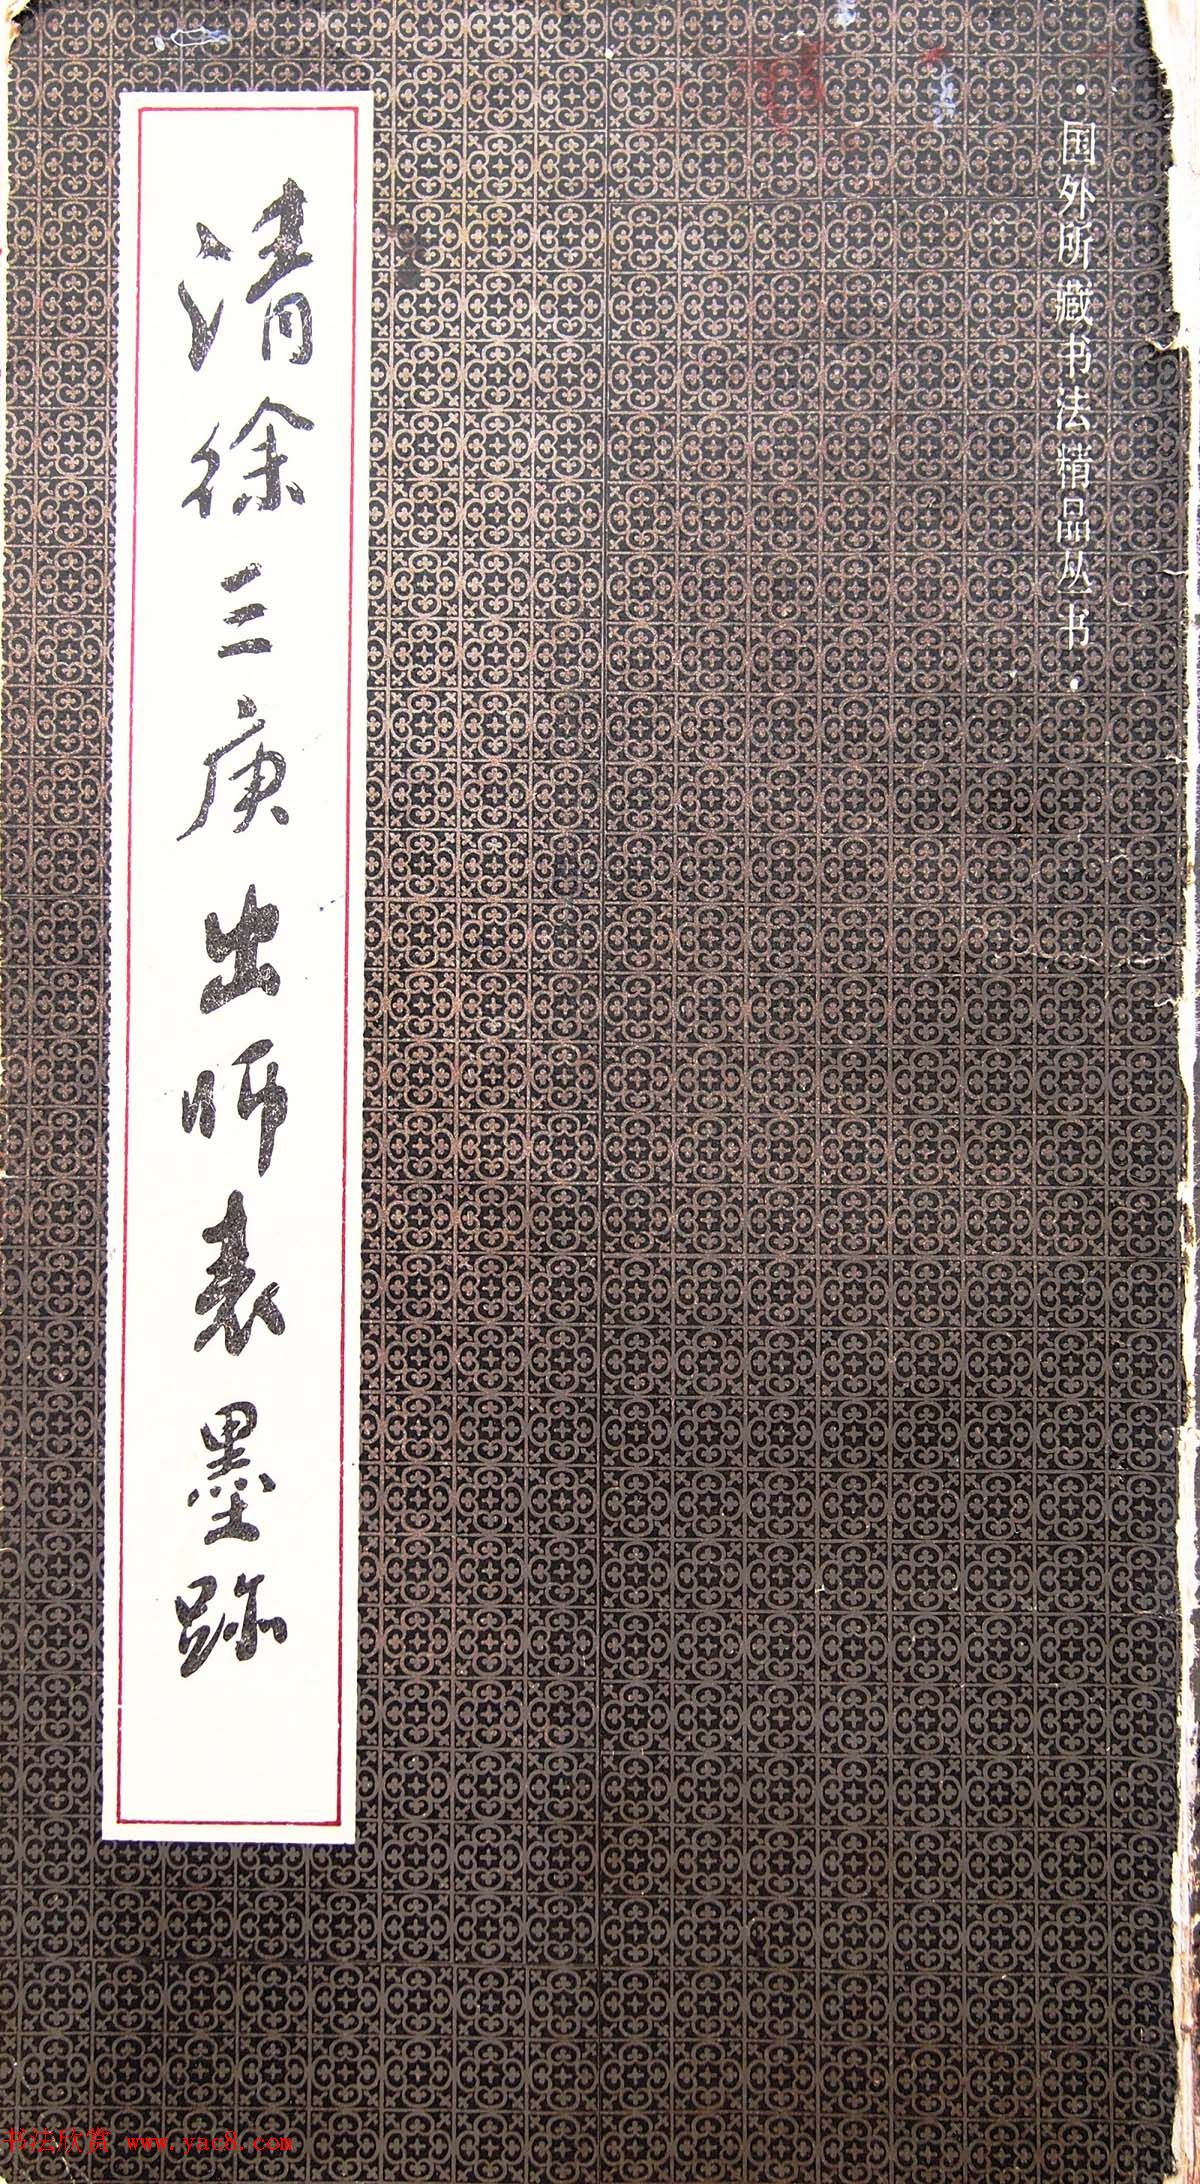 ·国外所藏书法精品丛书·
清徐三庚出师表墨跡
书法欣赏 www.yac8.com